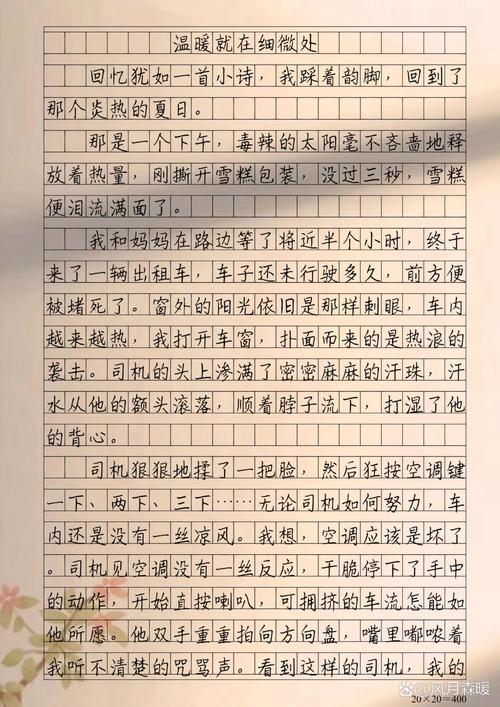 温暖就在细微处
回忆犹如一首小诗，我踩着韵脚，回到了
那个炎热的夏日。
那是一个下午，毒辣的太阳毫不吝啬地释
放着热量，刚撕开雪糕包装，没过三秒，雪糕
便泪流满面了。
我和妈妈在路边等了将近半个小时，终于
来了一辆出租车，车子还未行驶多久，前方便
被堵死了。窗外的阳光依旧是那样刺眼，车内
越来越热，我打开车窗，扑面而来的是热浪的
袭击。司机的头上渗满了密密麻麻的汗珠，汗
水从他的额头滚落，顺着脖子流下，打湿了他
的背心。
司机狠狠地揉了一把脸，然后狂按空调键
一下、两下、三下……无论司机如何努力，车
内还是没有一丝凉风。我想，空调应该是坏了
。司机见空调没有一丝反应，干脆停下了手中
的动作，开始直按喇叭，可拥挤的车流怎能如
他所愿。他双手重重拍向方向盘，嘴里嘟哝着
我听不清楚的咒骂声。看到这样的司机，我的
20×20=400
@风月森暖